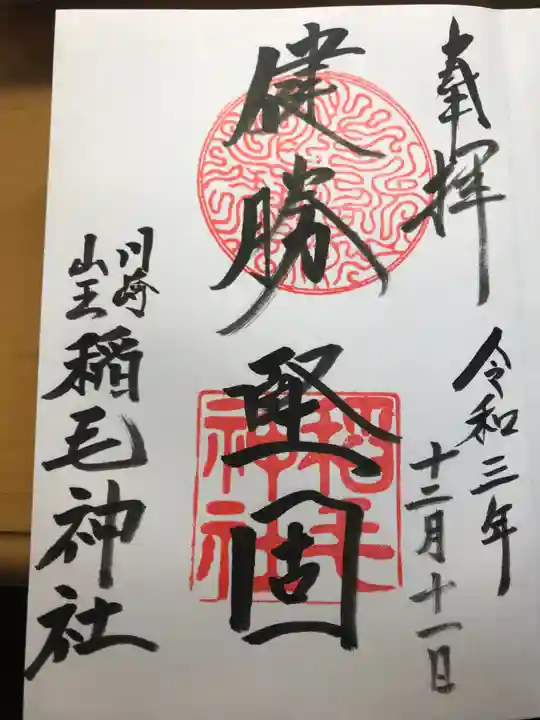 奉拝
令和三年
十二月十一日
健勝
堅固
川崎
山王
稲毛神社
稲毛
神社